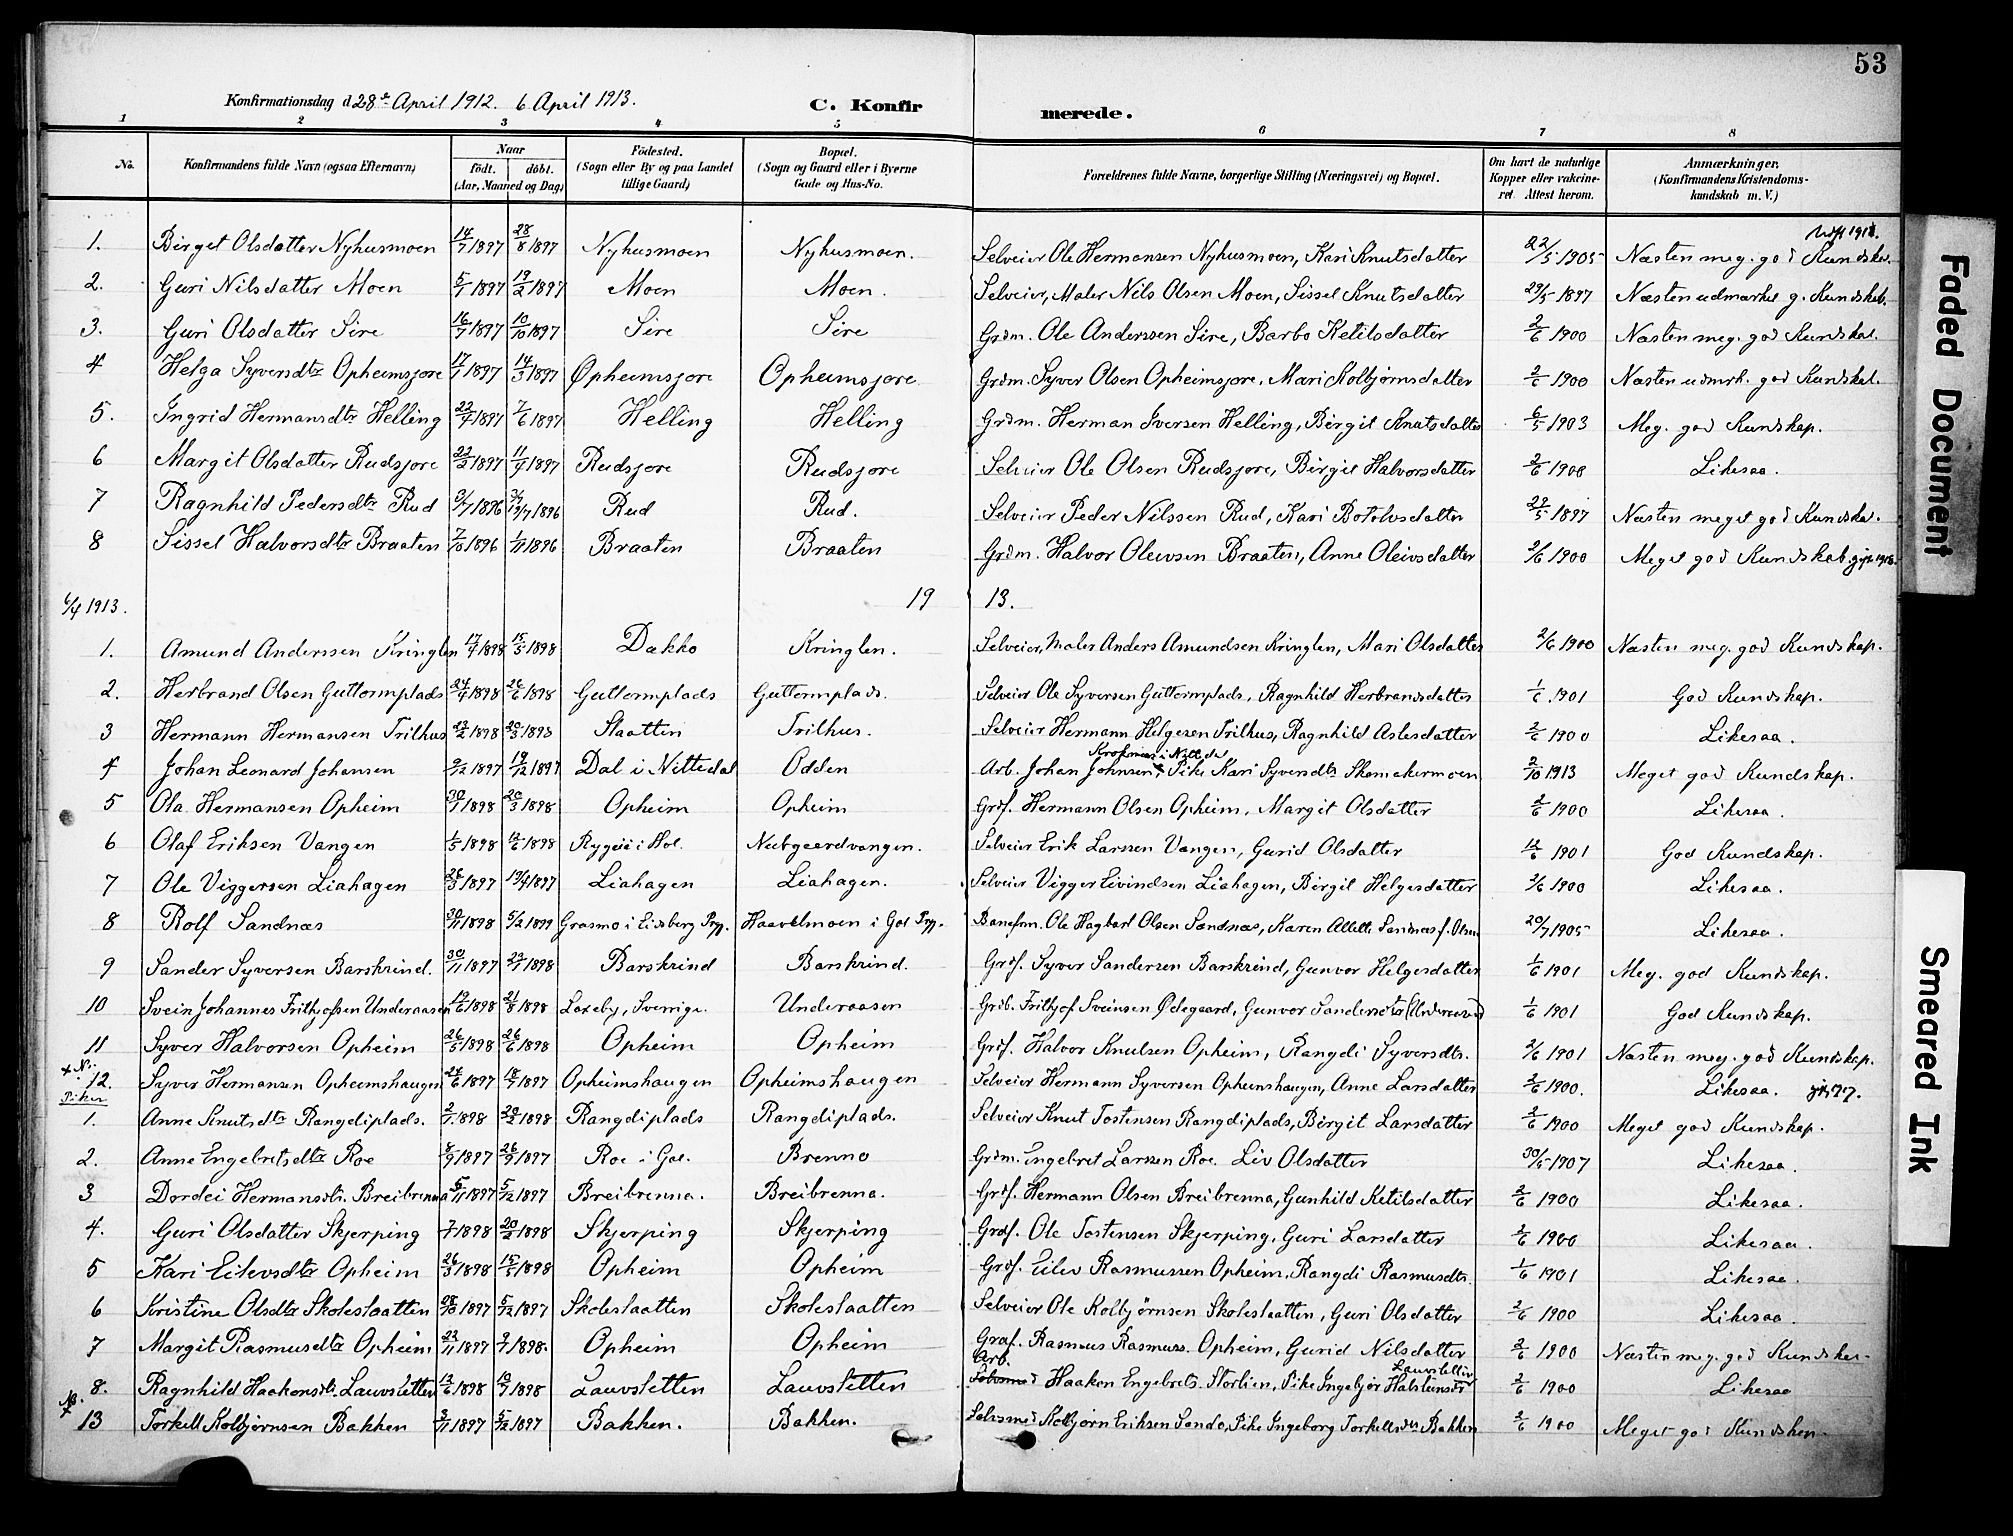 53
Konfirmationsdag d 28de April 1912. 6 April 1913. C. Konfirmerede.
1 2 3 4 5 6 7 8
No. Konfirmandens fulde Navn (ogsaa Efternavn) Naar født. døbt. (Aar, Maaned og Dag) Fødested. (Sogn eller By og paa Landet tillige Gaard) Bopæl. (Sogn og Gaard eller i Byerne Gade og Hus-No. Forældrenes fulde Navne, borgerlige Stilling (Næringsvei) og Bopæl. Om havt de naturlige Kopper eller vakcineret. Attest herom. Anmærkninger. (Konfirmandens Kristendomskundskab m. V.)
1. Birget Olsdatter Nyhusmoen 14/7 1897 28/8 1897 Nyhusmoen Nyhusmoen. Selveier Ole Hermansen Nyhusmoen, Kari Knutsdatter 22/5 1905 Næsten meg. god Kundskab.
2. Guri Nilsdatter Moen 5/1 1897 19/2 1897 Moen Moen. Selveier, Maler Nils Olsen Moen, Sissel Knutsdatter 29/5 1897 Næsten udmærket g. Kundskab.
3. Guri Olsdatter Sire 16/7 1897 10/10 1897 Sire Sire Grdm. Ole Anderssen Sire, Barbo Ketilsdatter 2/6 1900 Næsten meg. god Kundskab.
4 Helga Syversdtr Opheimsjore 17/1 1897 14/3 1897 Opheimsjore Opheimsjore Grdm. Syver Olsen Opheimsjore, Mari Kolbjørnsdatter 2/6 1900 Næsten udmrk. god Kundskab.
5. Ingrid Hermansdtr Helling 22/4 1897 7/6 1897 Helling Helling Grdm. Herman Iversen Helling, Birgit Knutsdatter 6/5 1903 Meg. god Kundskap.
6 Margit Olsdatter Rudsjore 22/2 1897 11/4 1897 Rudsjore Rudsjore Selveier Ole Olsen Rudsjore, Birgit Halvorsdatter 2/6 1900 Likesaa.
7 Ragnhild Pedersdtr Rud 3/7 1896 19/7 1896 Rud Rud. Selveier Peder Nilssen Rud, Kari Botolvsdatter 29/5 1897 Næsten meget god Kundskab.
8 Sissel Halvorsdtr Braaten 7/10 1896 1/11 1896 Braaten Braaten Grdm. Halvor Oleivsen Braaten, Anne Oleivsdatter 2/6 1900 Meget god Kundskab.
6/4 1913. 19 13.
1. Amund Anderssen Kringlen 17/4 1898 15/5 1898 Dokko Kringlen. Selveier, Maler Anders Amundsen Kringlen, Mari Olsdatter 2/6 1900 Næsten meg. god Kundskap.
2. Herbrand Olsen Guttormplads 24/4 1898 26/6 1898 Guttormplads Guttormplads. Selveier Ole Syversen Guttormplads, Ragnhild Herbrandsdatter 1/6 1901 God Kundskap.
3 Hermann Hermansen Trilhus 23/2 1898 20/3 1893 Slaatten Trilhus. Selveier Hermann Helgesen Trilhus, Ragnhild Aslesdatter 2/6 1900 Likesaa.
4 Johan Leonard Johansen 9/12 1897 19/12 1897 Dal i Nittedal Odden Arb. Johan Johnsen, Pike Kari Syversdtr Skomakermoen 2/10 1913 Meget god Kundskap.
5 Ola Hermansen Opheim 30/1 1898 20/3 1898 Opheim Opheim Grdf. Hermann Olsen Opheim, Margit Olsdatter 2/6 1900 Likesaa.
6 Olaf Eriksen Vangen 1/5 1898 12/6 1898 Rygøi i Hol. Nubgaardvangen. Selveier Erik Larssen Vangen, Gurid Olsdatter 12/6 1901 God Kundskap.
7 Ole Viggersen Liahagen 26/3 1897 19/4 1897 Liahagen Liahagen. Selveier Vigger Eivindsen Liahagen, Birgit Helgesdatter 2/6 1900 Likesaa.
8 Rolf Sandnæs 30/11 1898 5/2 1899 Grasmo i Eidsberg Prg. Haavelmoen i Gol Prg. Banefm. Ole Hagbart Olsen Sandnæs, Karen Allette Sandnæs f. Olsen 20/7 1905 Likesaa.
9 Sander Syversen Barskrind. 30/11 1897 23/1 1898 Barskrind Barskrind. Grdf. Syver Sandersen Barskrind, Gunvor Helgesdatter 1/6 1901 Meg. god Kundskap.
10 Svein Johannes Frithjofsen Underaasen 19/6 1898 21/8 1898 Laxeby, Sverrige. Underaasen Grdb. Frithjof Sveinsen Ødegaard, Gunvor Sandersdtr (Underaasen) 1/6 1901 God Kundskap.
11 Syver Halvorsen Opheim 26/5 1898 26/6 1898 Opheim Opheim Grdf. Halvor Knutsen Opheim, Rangdi Syversdtr. 2/6 1901 Næsten meg. god Kundskap.
12. Syver Hermansen Opheimshaugen 24/6 1897 18/7 1897 Opheimshaugen Opheimshaugen Selveier Hermann Syversen Opheimshaugen, Anne Larsdatter 2/6 1900. Likesaa.
Piker
1. Anne Knutsdtr Rangdiplads. 2/1 1898 20/2 1898 Rangdiplads Rangdiplads. Selveier Knut Tostensen Rangdiplads, Birgit Larsdatter 2/6 1900 Meget god Kundskap.
2. Anne Engebretsdtr Roe 8/9 1897 26/9 1897 Roe i Gol. Brenno Grdm. Engebret Larssen Roe. Liv Olsdatter 30/5 1907 Likesaa.
3 Dordei Hermansdtr. Breibrenna 5/11 1897 5/12 1897 Breibrenna. Breibrenna. Grdf. Hermann Olsen Breibrenna, Gunhild Ketilsdatter 2/6 1900 Likesaa.
4. Guri Olsdatter Skjerping 7/1 1898 20/2 1898 Skjerping Skjerping Grdf. Ole Tostensen Skjerping, Guri Larsdatter 2/6 1900 Likesaa.
5 Kari Eilevsdtr Opheim 26/3 1898 15/5 1898 Opheim Opheim Grdf. Eilev Rasmussen Opheim, Rangdi Rasmusdtr. 1/6 1901 Likesaa.
6 Kristine Olsdtr Skoleslaatten 28/10 1897 5/12 1897 Skoleslaatten Skoleslaatten Selveier Ole Kolbjørnsen Skoleslaatten, Guri Olsdatter 2/6 1900 Likesaa.
7 Margit Rasmusdtr Opheim 22/11 1897 9/1 1898. Opheim Opheim Grdf. Rasmus Rasmuss. Opheim, Gurid Nilsdatter 2/6 1900 Næsten meg. god Kundskap.
8. Ragnhild Haakensdtr. Lauvsletten 12/6 1898 10/7 1898 Lauvsletten Lauvsletten Arb. Haaken Engebrets. Storlien, Pike Ingebjør Halsteinsdr Lauvsletten 2/6 1900 Likesaa
13 Torkell Kolbjørnsen Bakken 3/11 1897 5/12 1897 Bakken. Bakken. Kolbjørn Eriksen Sando, Pike Ingeborg Torkellsdtr Bakken 2/6 1900 Meget god Kundskap.
Faded Document
Smeared Ink